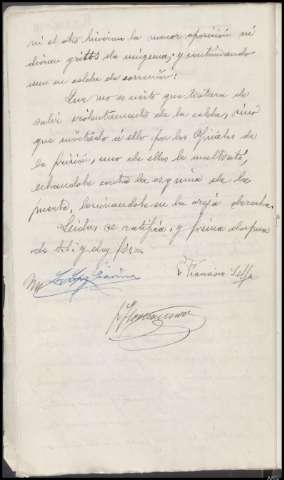 ni el otro hicieron la menor oposición ni
dieron gritos de ninguna; y continuando
en su celda de corrección:
Que no es cierto que tratara de
salir violentamente de la celda, sino
que invitado á ello por los Oficiales de
la prisión, uno de ellos le maltrató,
echandole contra la esquina de la
puerta, lesionandole en la oreja derecha.
Leida, se ratifica, y firma despues
de S.S. y doy fé.=
Francisco